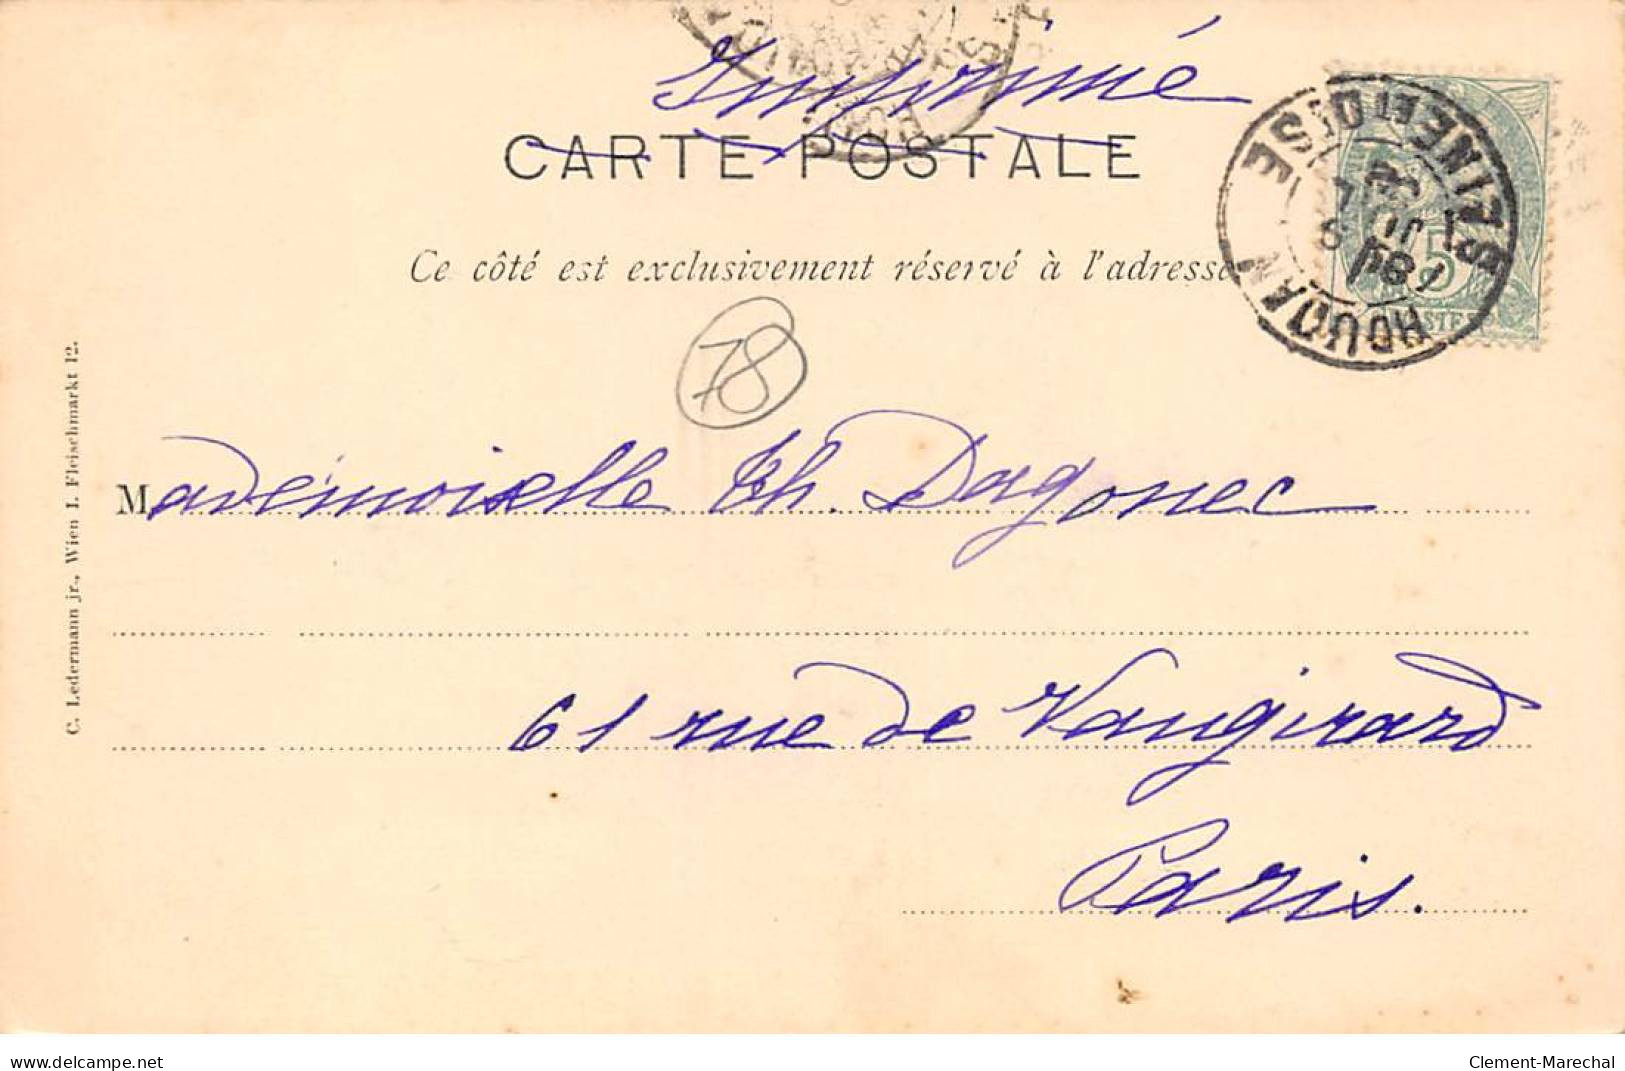 Imprimé
CARTE POSTALE
Ce côté est exclusivement réservé à l'adresse
78
Mademoiselle Th. Dagonec
61 rue de Vaugirard
Paris.
C. Ledermann jr., Wien I. Fleischmarkt 12.
HOUDAN
SEINE ET OISE
5
delcampe.net
Clement-Marechal